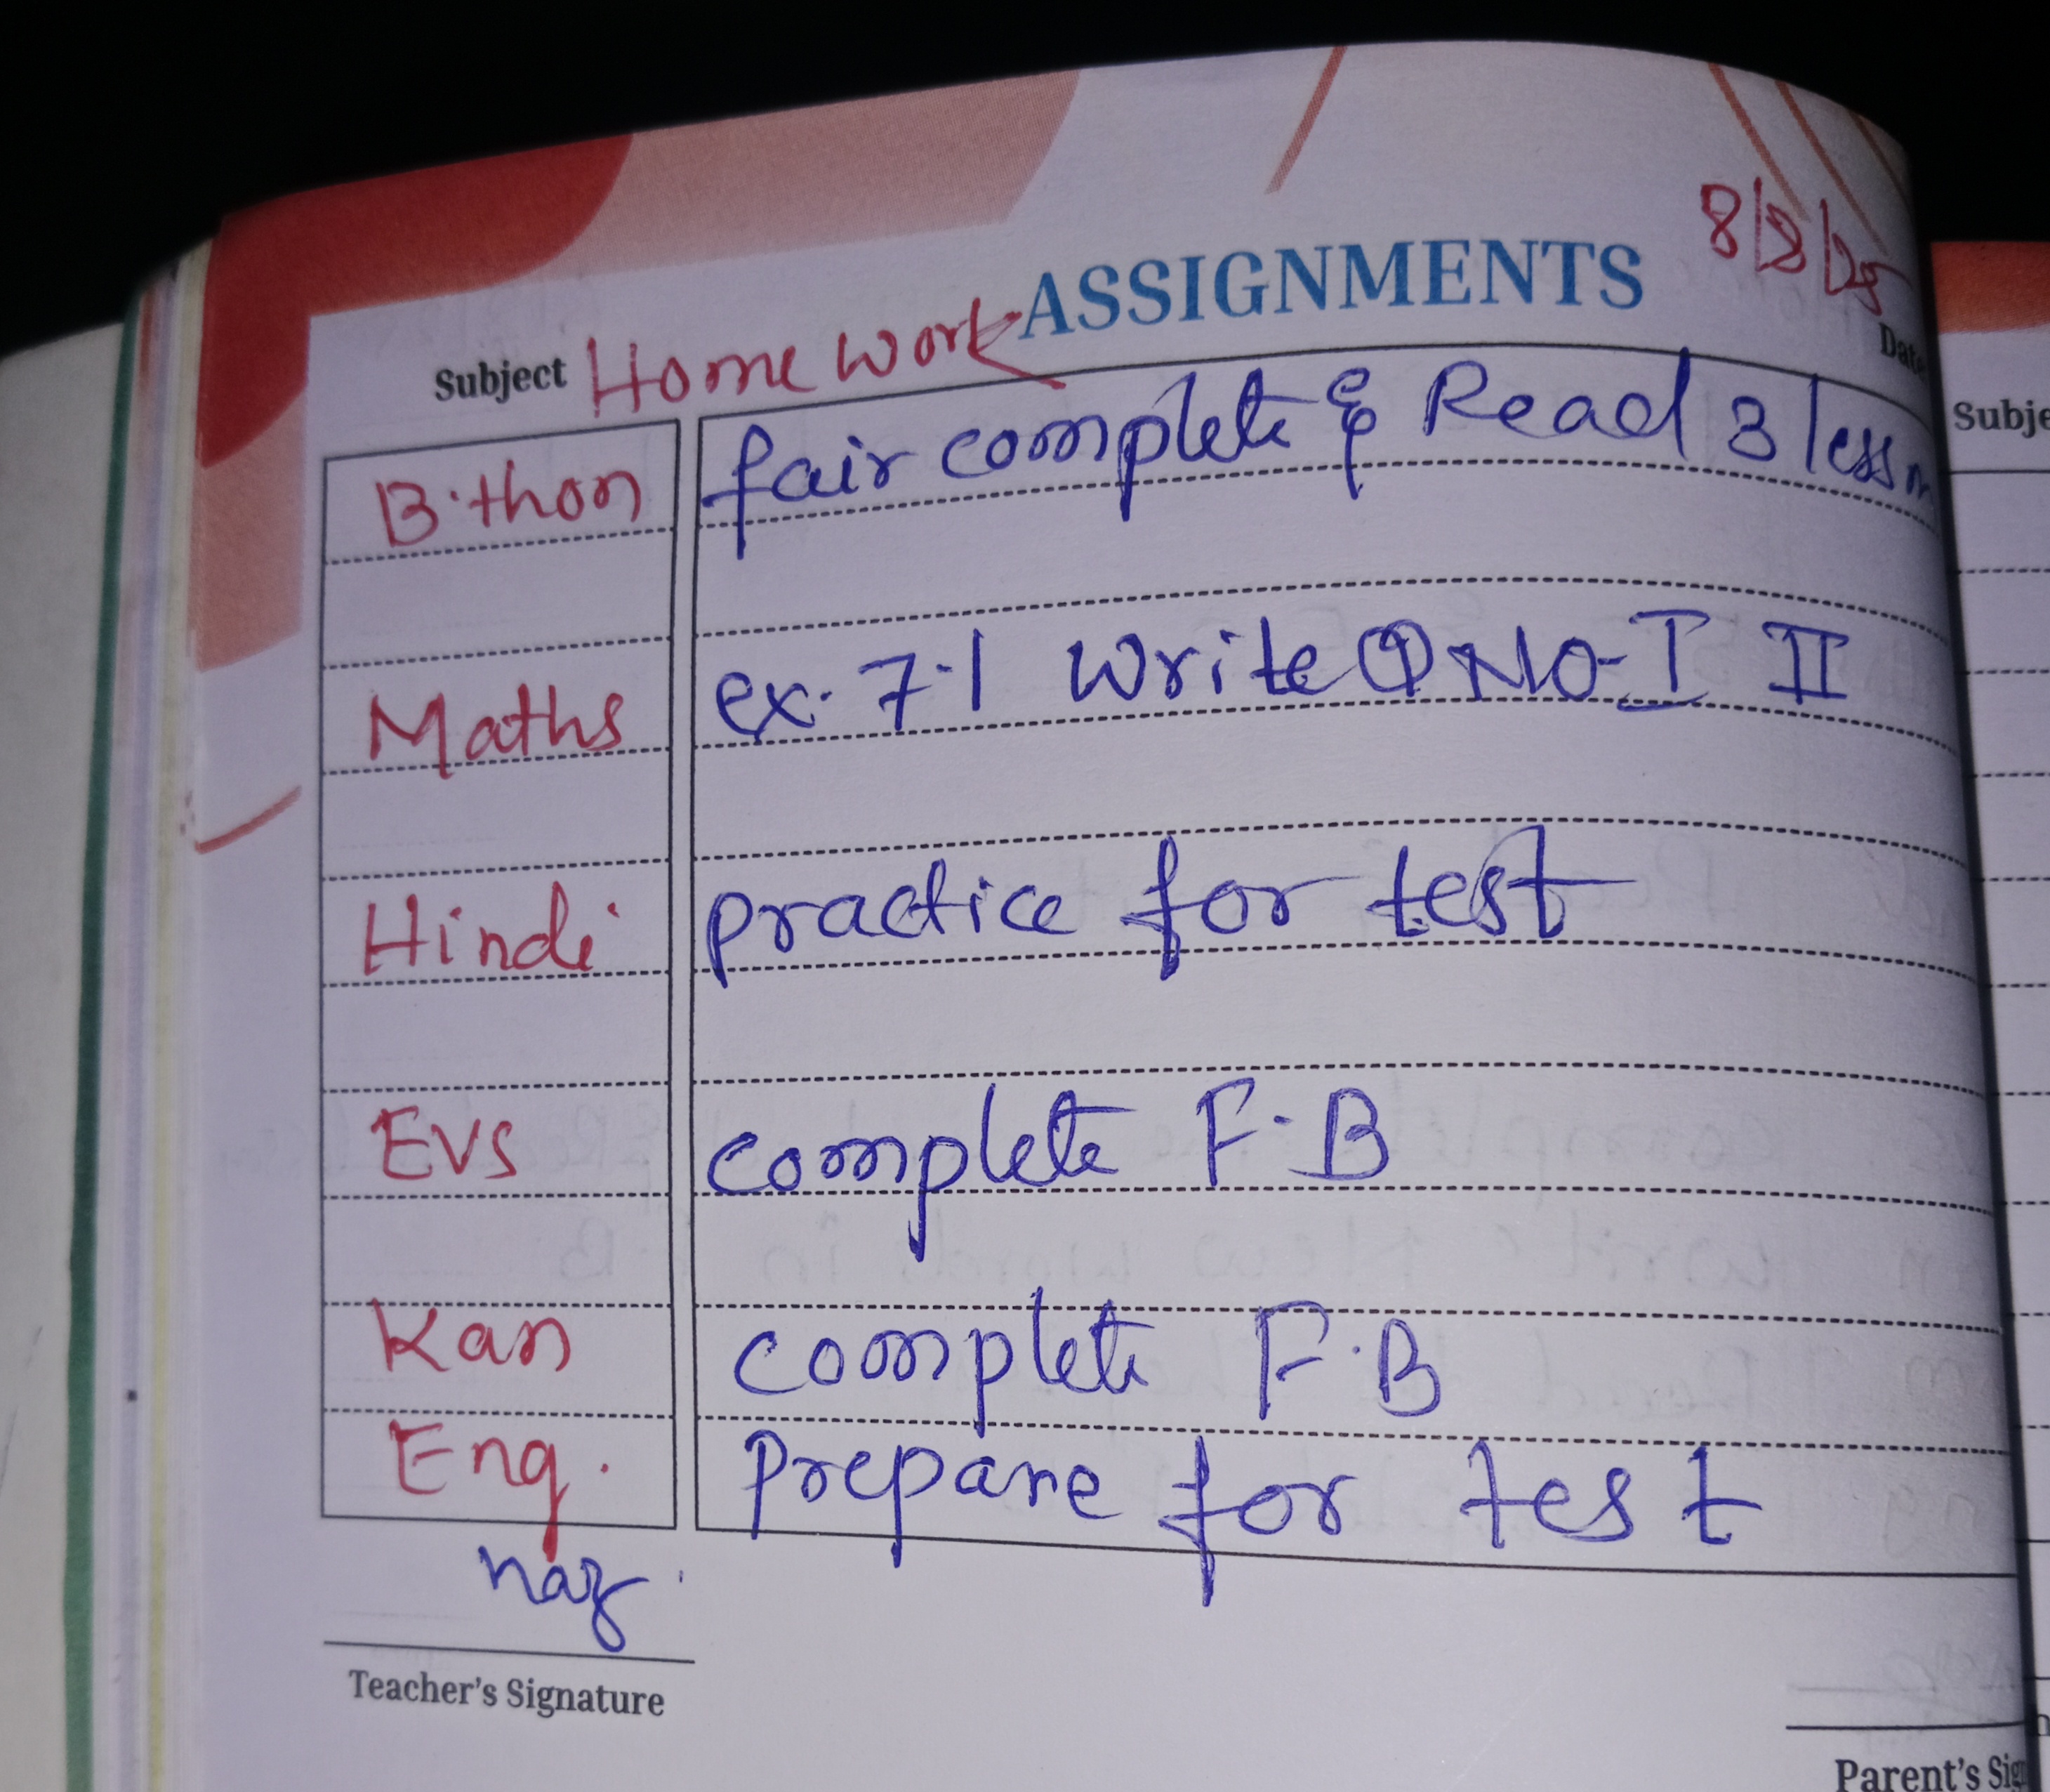 ASSIGNMENTS
8/8/25
Subject Home Work
Date
Subje
B.thon fair complete & Read 3 lesson
Maths ex. 7.1 Write Q NO-I II
Hindi practice for test
EVS complete F.B
Kan complete F.B
Eng. Prepare for test
naz.
Teacher's Signature
Parent's Sig